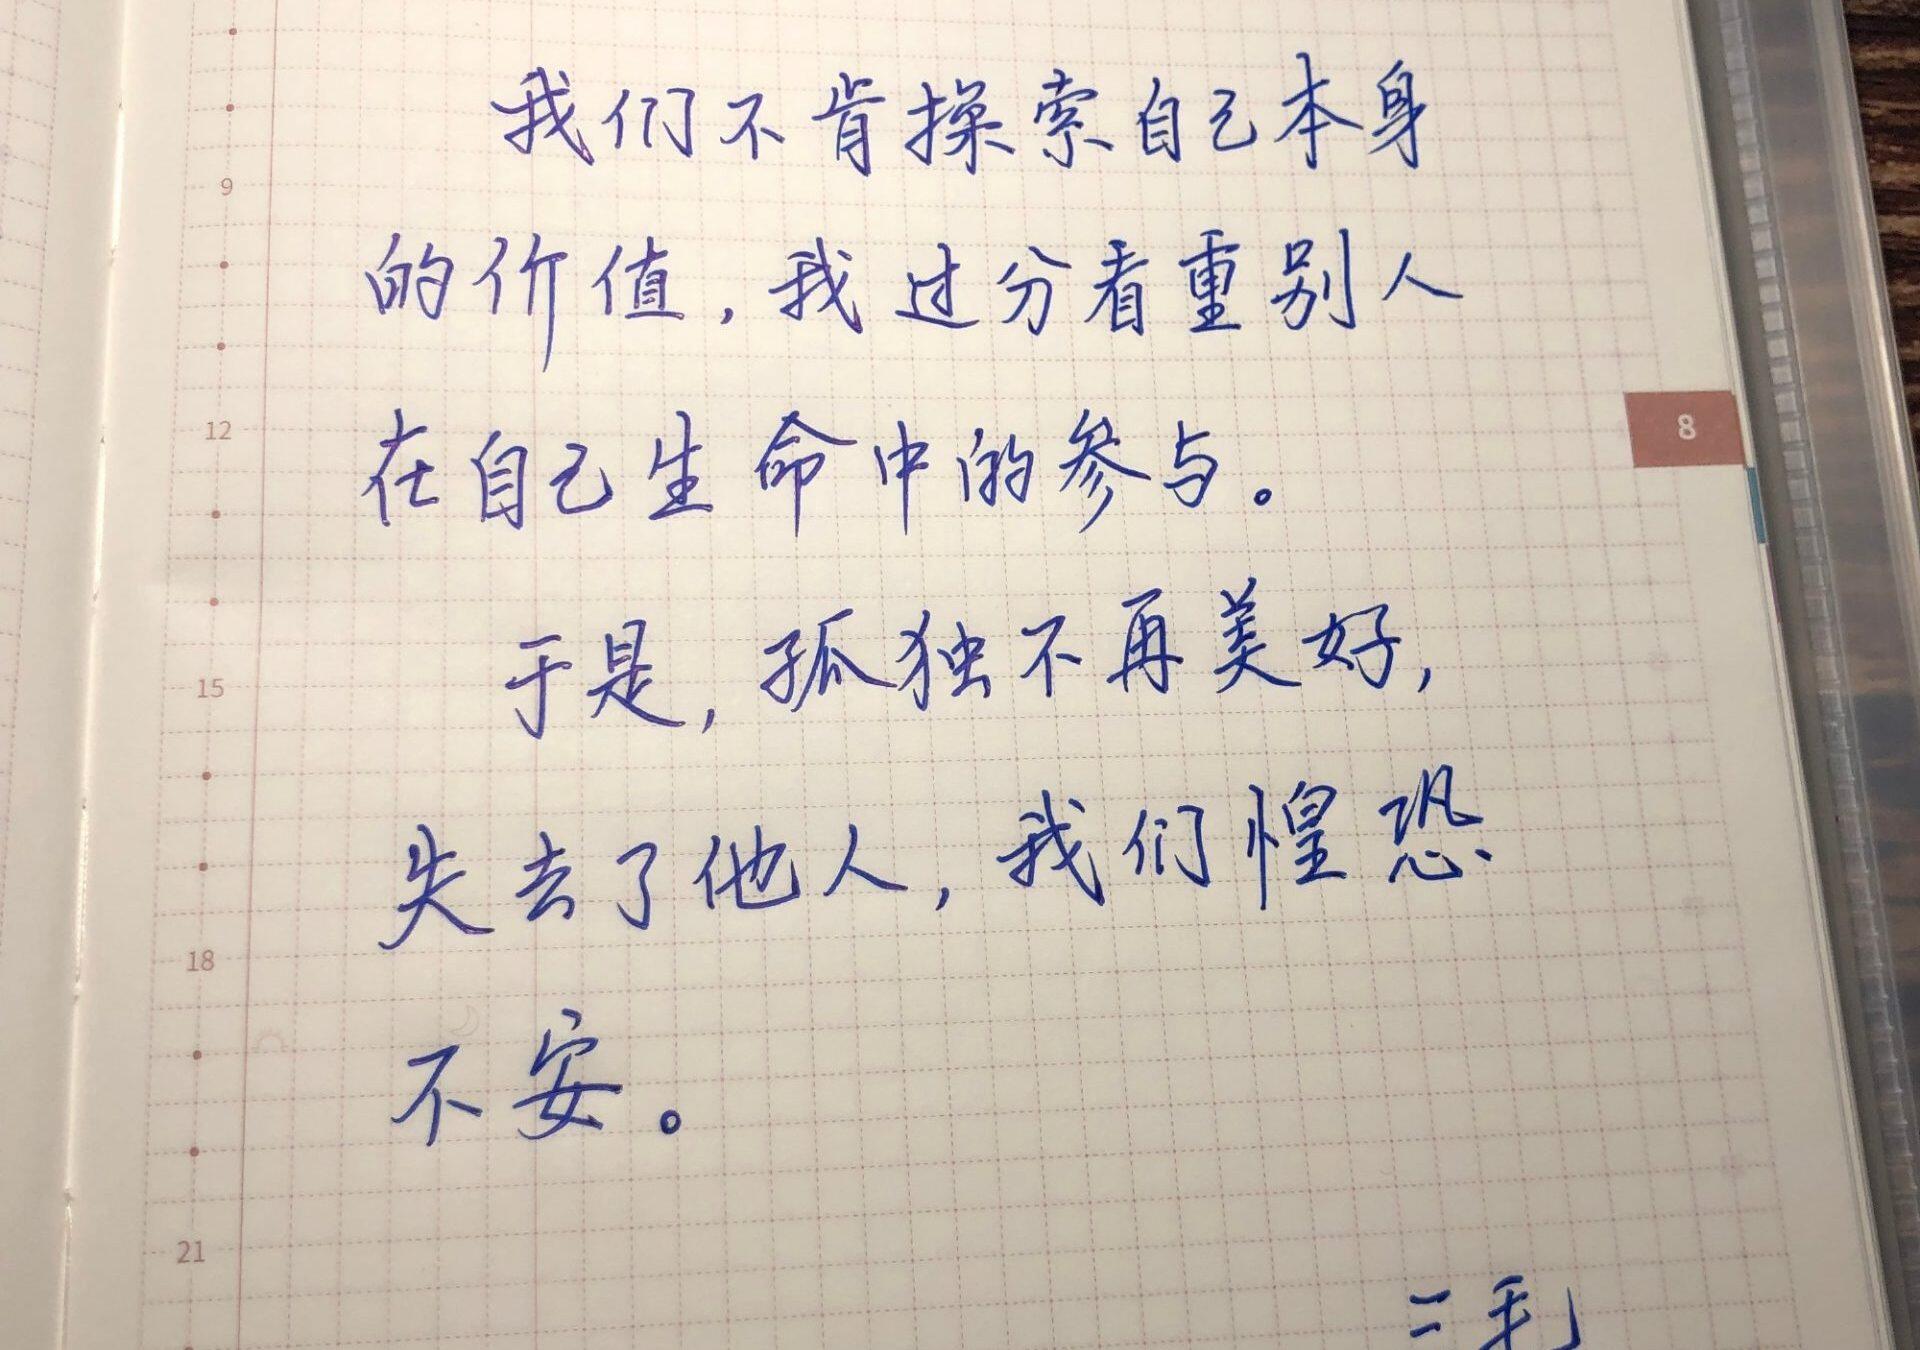 我们不肯探索自己本身
9
的价值，我过分看重别人
12
在自己生命中的参与。
8
于是，孤独不再美好，
15
失去了他人，我们惶恐
18
不安。
21
三毛